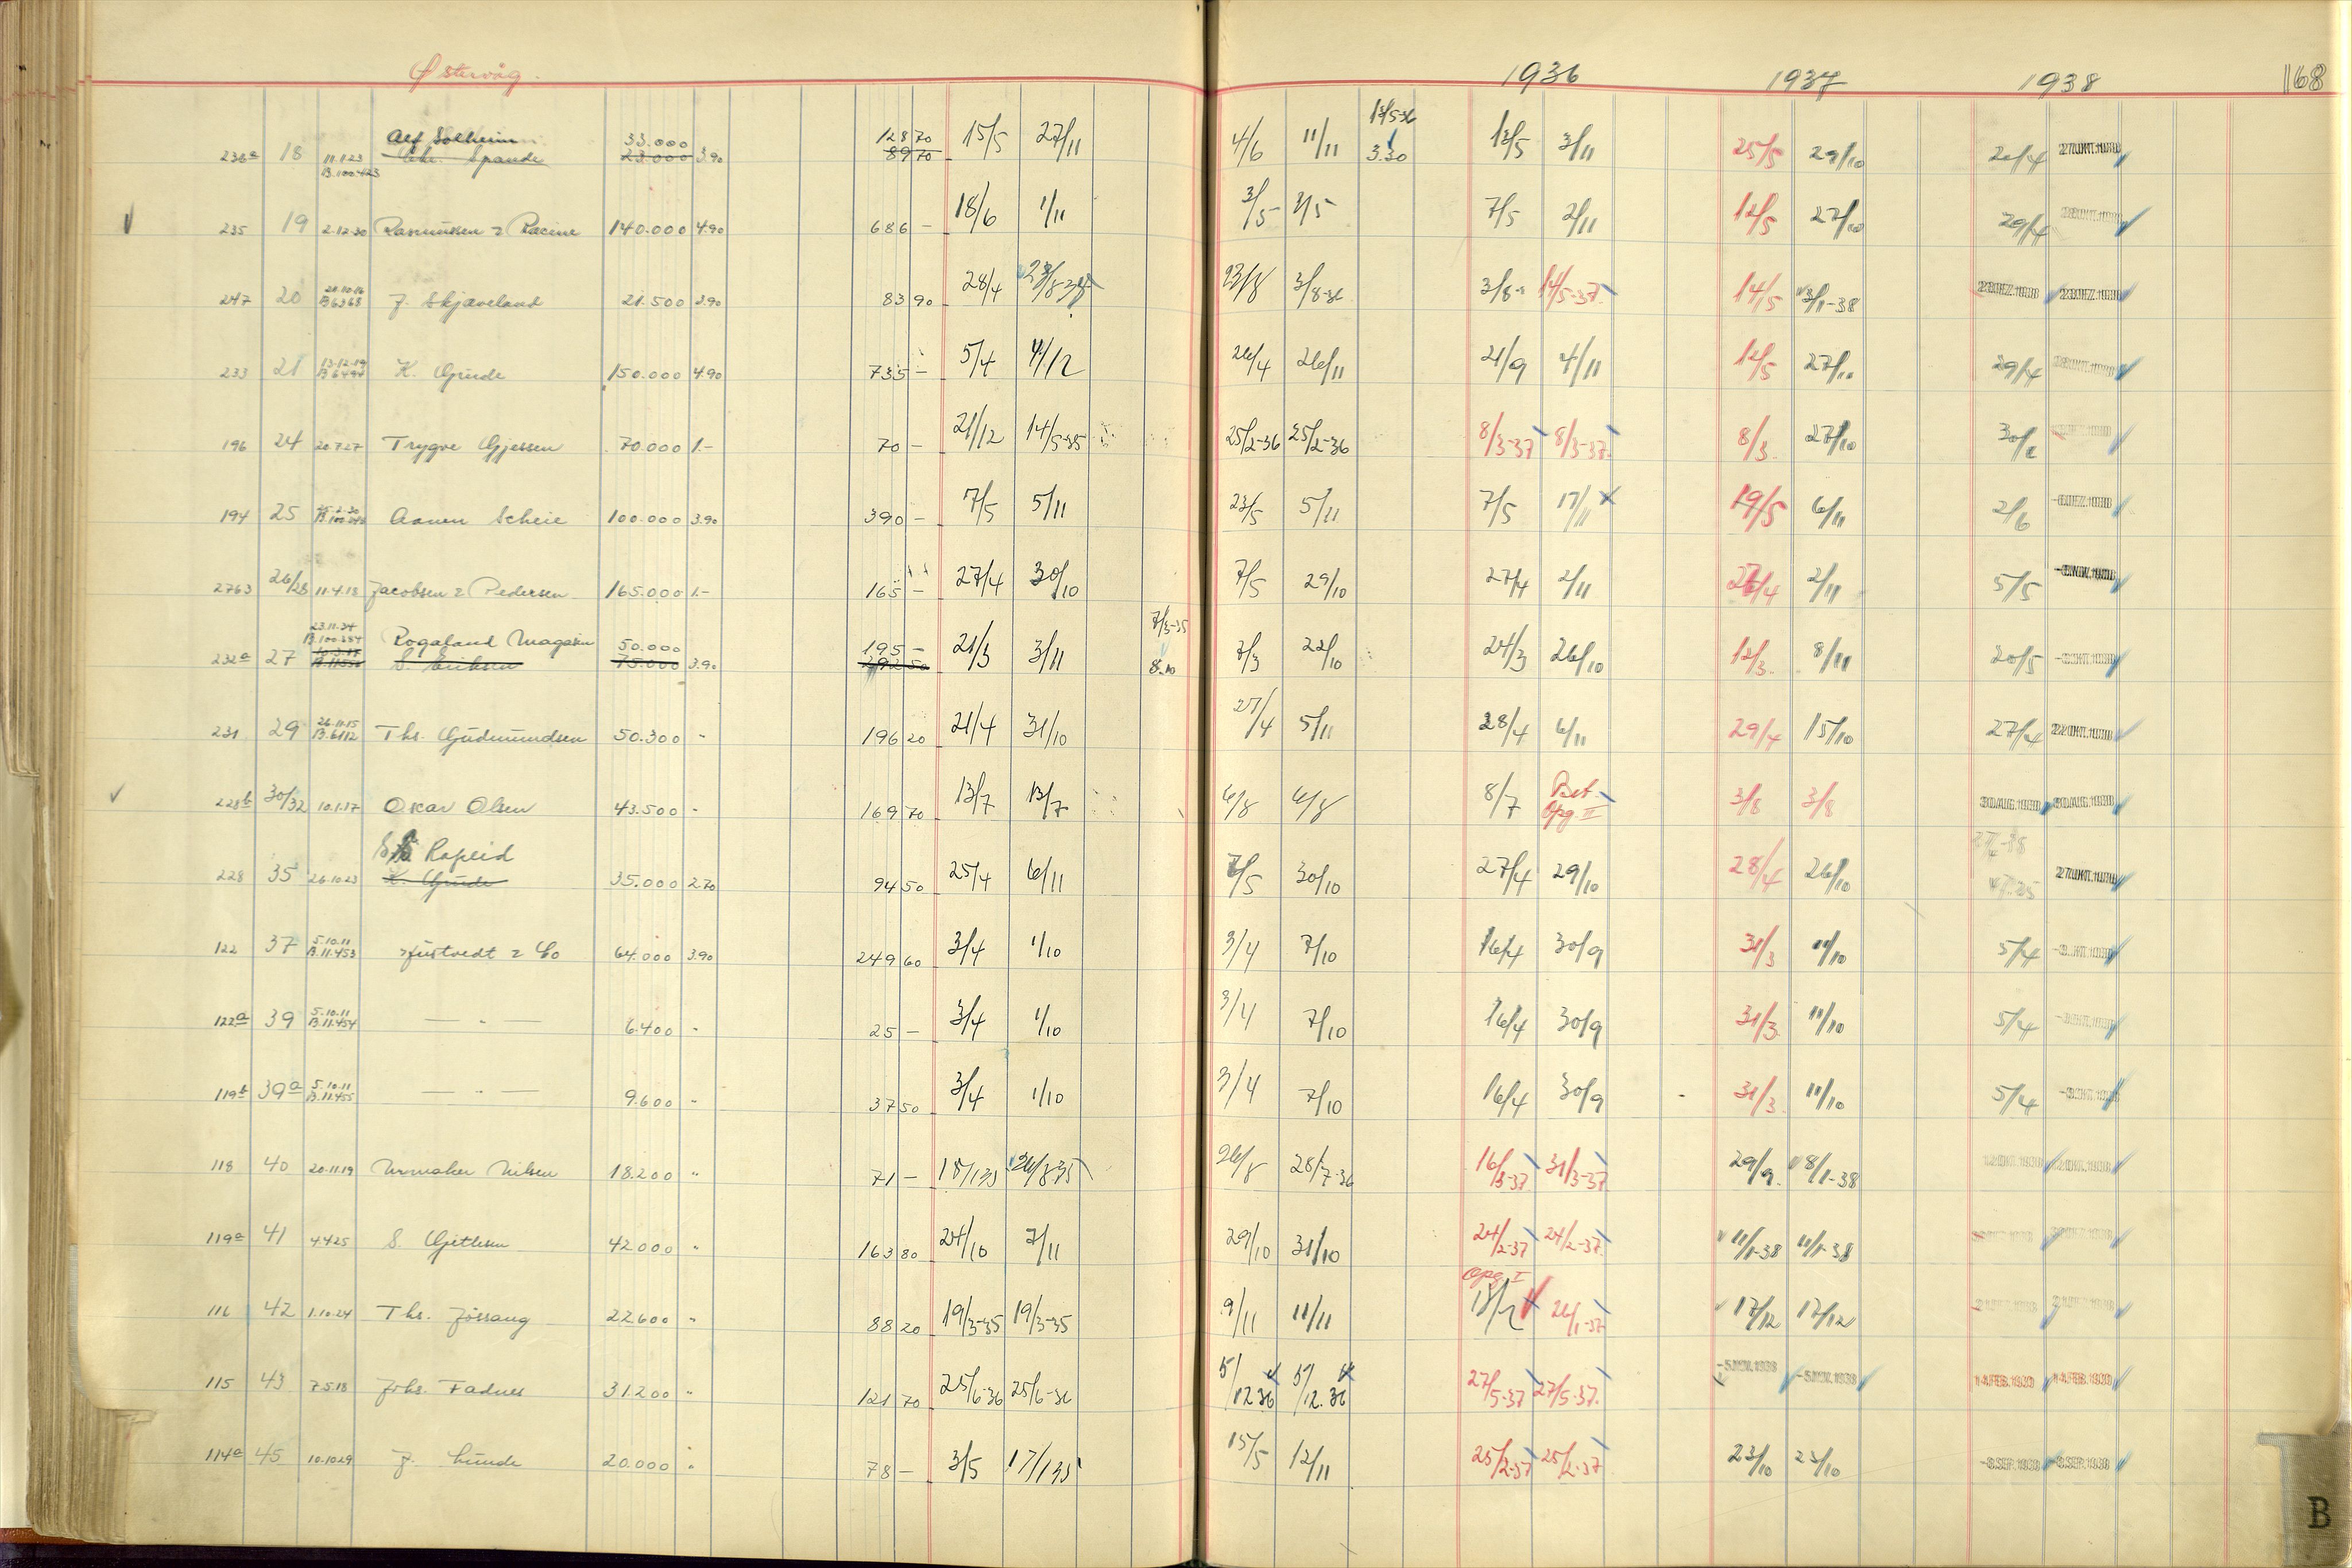 Østervåg. 1936 1937 1938 168
Alf Solheim 33.000 128 70 13/5-36
236a 18 11.1.23 Chr. Spande 23.000 3.90 89 70 15/5 27/11 4/6 11/11 3.30 13/5 3/11 25/5 29/10
B.100.423
235 19 2.12.30 Rasmussen & Racine 140.000 4.90 686 — 18/6 1/11 3/5 7/5 2/11 12/5 27/10 29/4
247 20 B6368 J. Skjæveland 21.500 3.90 83 90 28/4 23/8 3/8-36 3/8 14/5-37 14/5 3/1-38
13.12.19
233 21 B6494 K. Grude 150.000 4.90 735 — 5/4 4/12 26/4 26/11 21/9 4/11 12/5 27/10 29/4
196 24 20.7.27 Trygve Gjessen 70.000 1.- 70 — 21/12 14/5-35 25/2-36 25/2-36 8/3-37 8/3-37 8/3 27/10
194 25 Aanen Scheie 100.000 3.90 390 — 7/5 5/11 23/5 5/11 7/5 17/11 19/5 6/11 2/6
2763 26/28 11.4.18 Jacobsen & Pedersen 165.000 1.- 165 — 27/4 30/10 7/5 29/10 27/4 2/11 2/11 5/5
23.11.34 7/3-35
B.100.384 Rogaland Magasin 50.000 195 —
232a 27 S. Eriksen 75.000 3.90 292 50 21/3 3/11 8.10 7/3 22/10 24/3 26/10 12/3 8/11 20/5
26.11.15
231 29 B.6112 Ths. Gudmundsen 50.300 " 196 20 21/4 31/10 27/4 5/11 28/4 6/11 29/4 15/10 27/4
228b 30/32 10.1.17 Oskar Olsen 43.500 " 169 70 13/7 13/7 6/8 6/8 8/7 Bet. Opg. II 3/8 3/8 30 AUG. 1938 30 AUG. 1938
Rapleid
228 35 26.10.23 K. Grude 35.000 2.70 94 50 25/4 6/11 7/5 30/10 27/4 29/10 28/4 26/10 27 OKT. 1938
5.10.11
122 37 B.11.453 Justvedt & Co 64.000 3.90 249 60 3/4 1/10 3/4 7/10 16/4 30/9 31/3 11/10 5/4
5.10.11
122a 39 B.11.454 — " — 6.400 " 25 — 3/4 1/10 3/4 7/10 16/4 30/9 31/3 11/10 5/4
5.10.11
119b 39a B.11.455 — " — 9.600 " 37 50 3/4 1/10 3/4 7/10 16/4 30/9 31/3 11/10 5/4
118 40 20.11.19 Urmaker Nilsen 18.200 " 71 — 26/8-35 26/8 28/7-36 16/3-37 31/3-37 29/9 8/1-38
119a 41 4.4.25 S. Gjetlesen 42.000 " 163 80 24/10 7/11 29/10 31/10 24/2-37 24/2-37 11/1-38 11/1-38
Opg. I
116 42 1.10.24 Ths. Jössang 22.600 " 88 20 19/3-35 19/3-35 9/11 11/11 26/1-37 17/12 17/12
115 43 7.5.18 Johs. Fadnes 31.200 " 121 70 25/6-36 25/6-36 5/12.36 5/12.36 27/5-37 27/5-37. 14 FEB. 1939 14 FEB. 1939
114a 45 10.10.29 J. Lunde 20.000 " 78 — 3/5 15/5 12/11 25/2-37 25/2-37 23/10 23/10 -8 SEP. 1938 -8 SEP. 1938
B